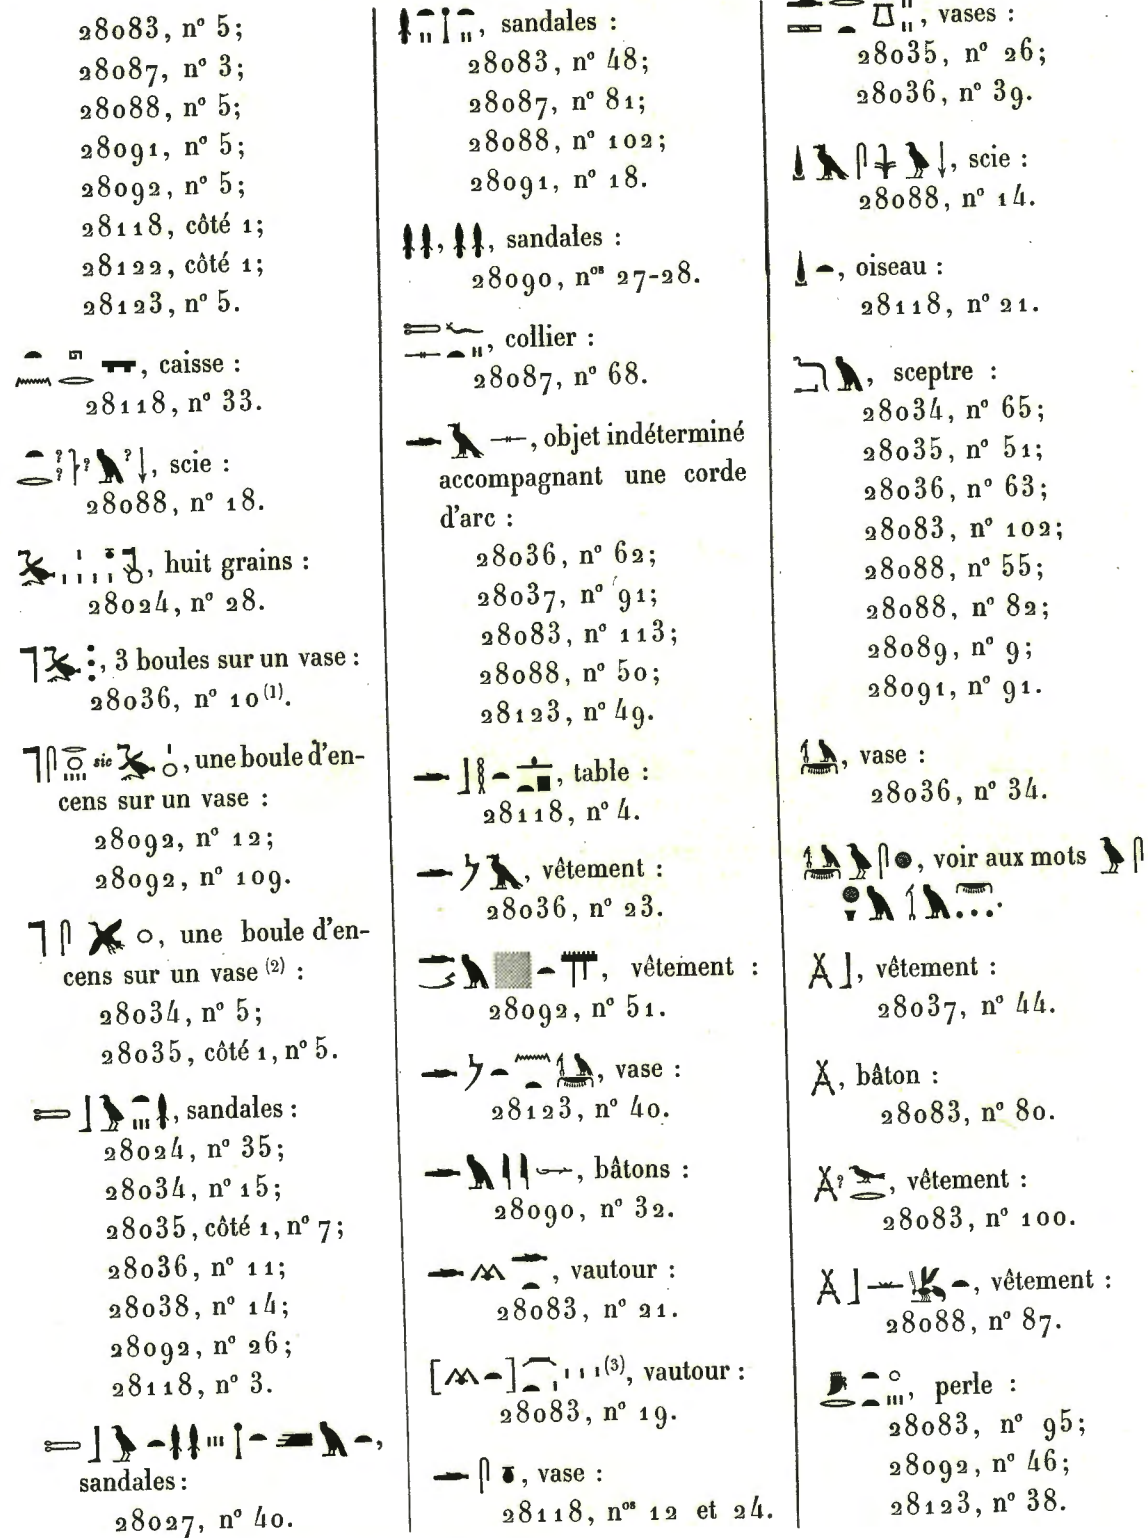 28083, n° 5;
28087, n° 3;
28088, n° 5;
28091, n° 5;
28092, n° 5;
28118, côté 1;
28122, côté 1;
28123, n° 5.
, caisse :
28118, n° 33.
, scie :
28088, n° 18.
, huit grains :
28024, n° 28.
, 3 boules sur un vase :
28036, n° 10(1).
sic , une boule d'en-
cens sur un vase :
28092, n° 12;
28092, n° 109.
, une boule d'en-
cens sur un vase (2) :
28034, n° 5;
28035, côté 1, n° 5.
, sandales :
28024, n° 35;
28034, n° 15;
28035, côté 1, n° 7;
28036, n° 11;
28038, n° 14;
28092, n° 26;
28118, n° 3.
,
sandales :
28027, n° 40.
, sandales :
28083, n° 48;
28087, n° 81;
28088, n° 102;
28091, n° 18.
, , sandales :
28090, nos 27-28.
, collier :
28087, n° 68.
, objet indéterminé
accompagnant une corde
d'arc :
28036, n° 62;
28037, n° 91;
28083, n° 113;
28088, n° 50;
28123, n° 49.
, table :
28118, n° 4.
, vêtement :
28036, n° 23.
, vêtement :
28092, n° 51.
, vase :
28123, n° 40.
, bâtons :
28090, n° 32.
, vautour :
28083, n° 21.
[ ] (3), vautour :
28083, n° 19.
, vase :
28118, nos 12 et 24.
, vases :
28035, n° 26;
28036, n° 39.
, scie :
28088, n° 14.
, oiseau :
28118, n° 21.
, sceptre :
28034, n° 65;
28035, n° 51;
28036, n° 63;
28083, n° 102;
28088, n° 55;
28088, n° 82;
28089, n° 9;
28091, n° 91.
, vase :
28036, n° 34.
, voir aux mots
, vêtement :
28037, n° 44.
, bâton :
28083, n° 80.
, vêtement :
28083, n° 100.
, vêtement :
28088, n° 87.
, perle :
28083, n° 95;
28092, n° 46;
28123, n° 38.